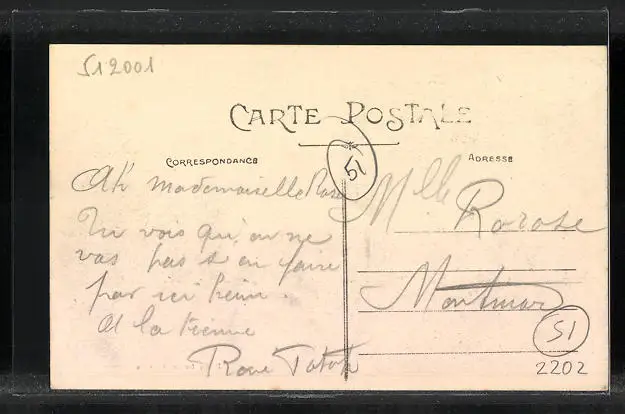 512001
CARTE POSTALE
51
CORRESPONDANCE
ADRESSE
Ah mademoiselle Rose
Mlle Rorose
Tu vois qu'on ne
vas pas s'en faire
par ici hein.
Montmar
A la tienne
51
2202